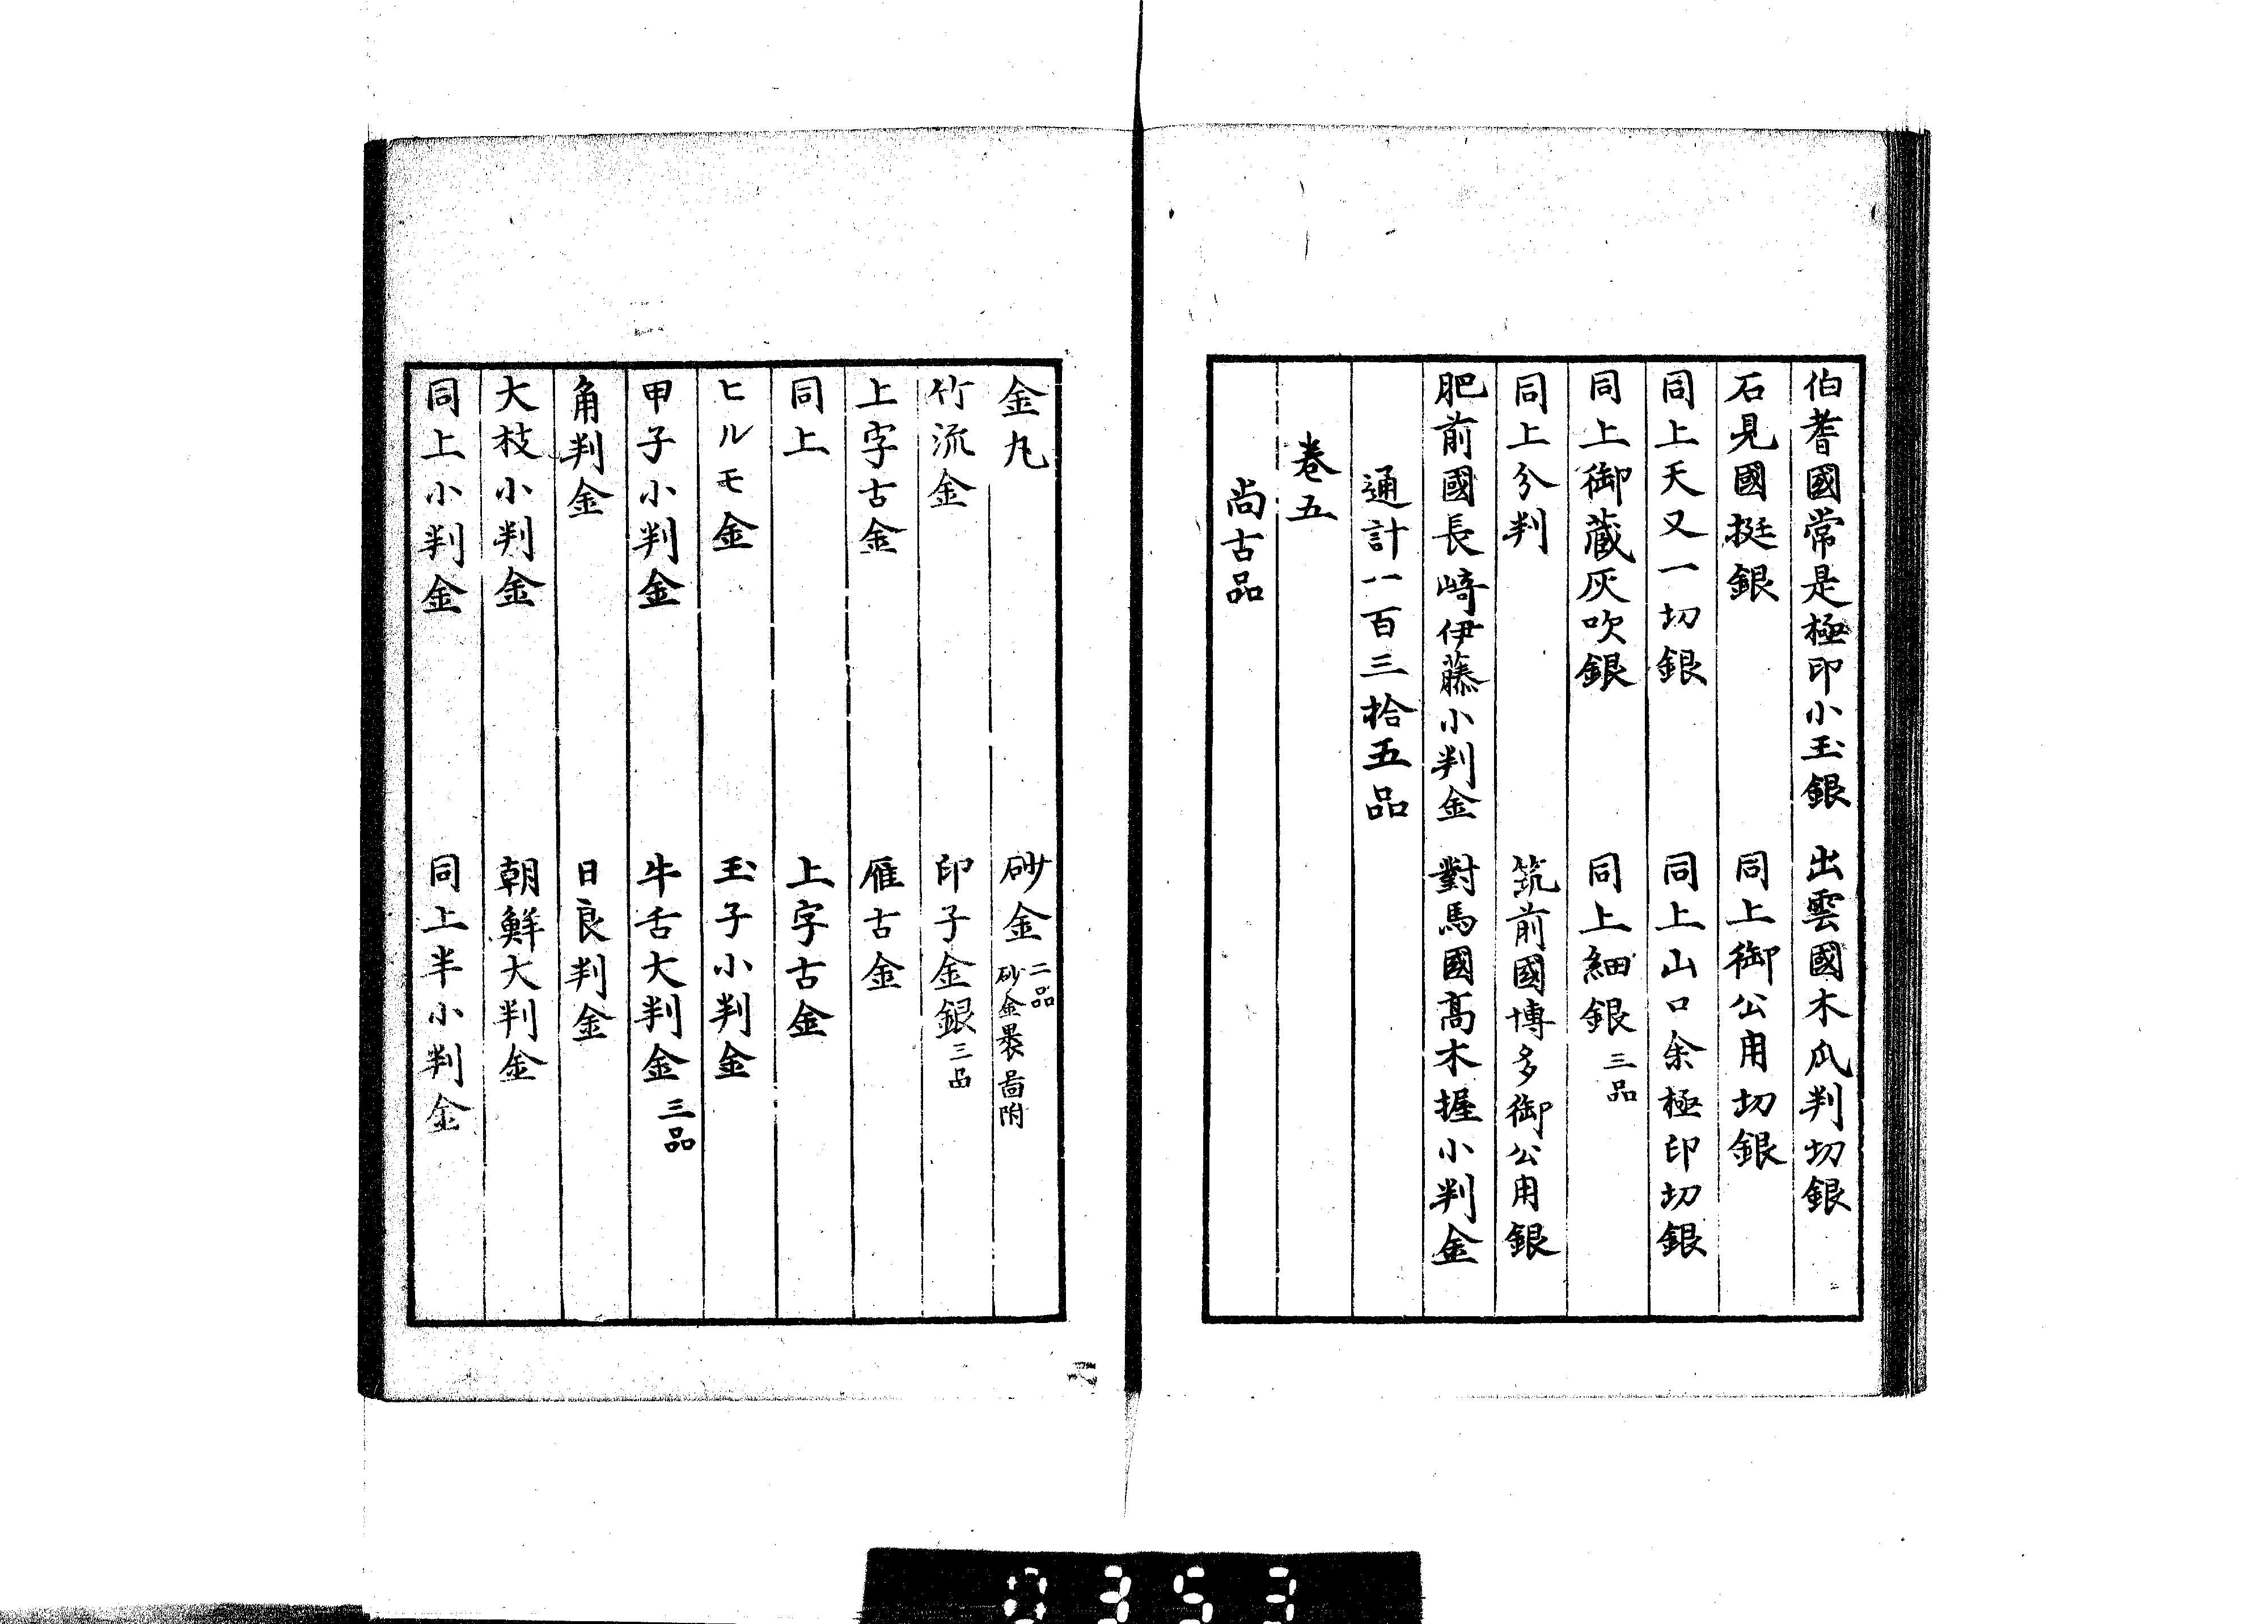 伯耆國常是極印小玉銀　出雲國木瓜判切銀
石見國挺銀　同上御公用切銀
同上天又一切銀　同上山口余極印切銀
同上御藏灰吹銀　同上細銀 三品
同上分判　筑前國博多御公用銀
肥前國長﨑伊藤小判金　對馬國髙木握小判金
通計一百三拾五品
卷五
尚古品
金丸　砂金 二品 砂金裹啚附
竹流金　印子金銀 三品
上字古金　雁古金
同上　上字古金
ヒルモ金　玉子小判金
甲子小判金　牛舌大判金 三品
角判金　日良判金
大枝小判金　朝鮮大判金
同上小判金　同上半小判金
0353